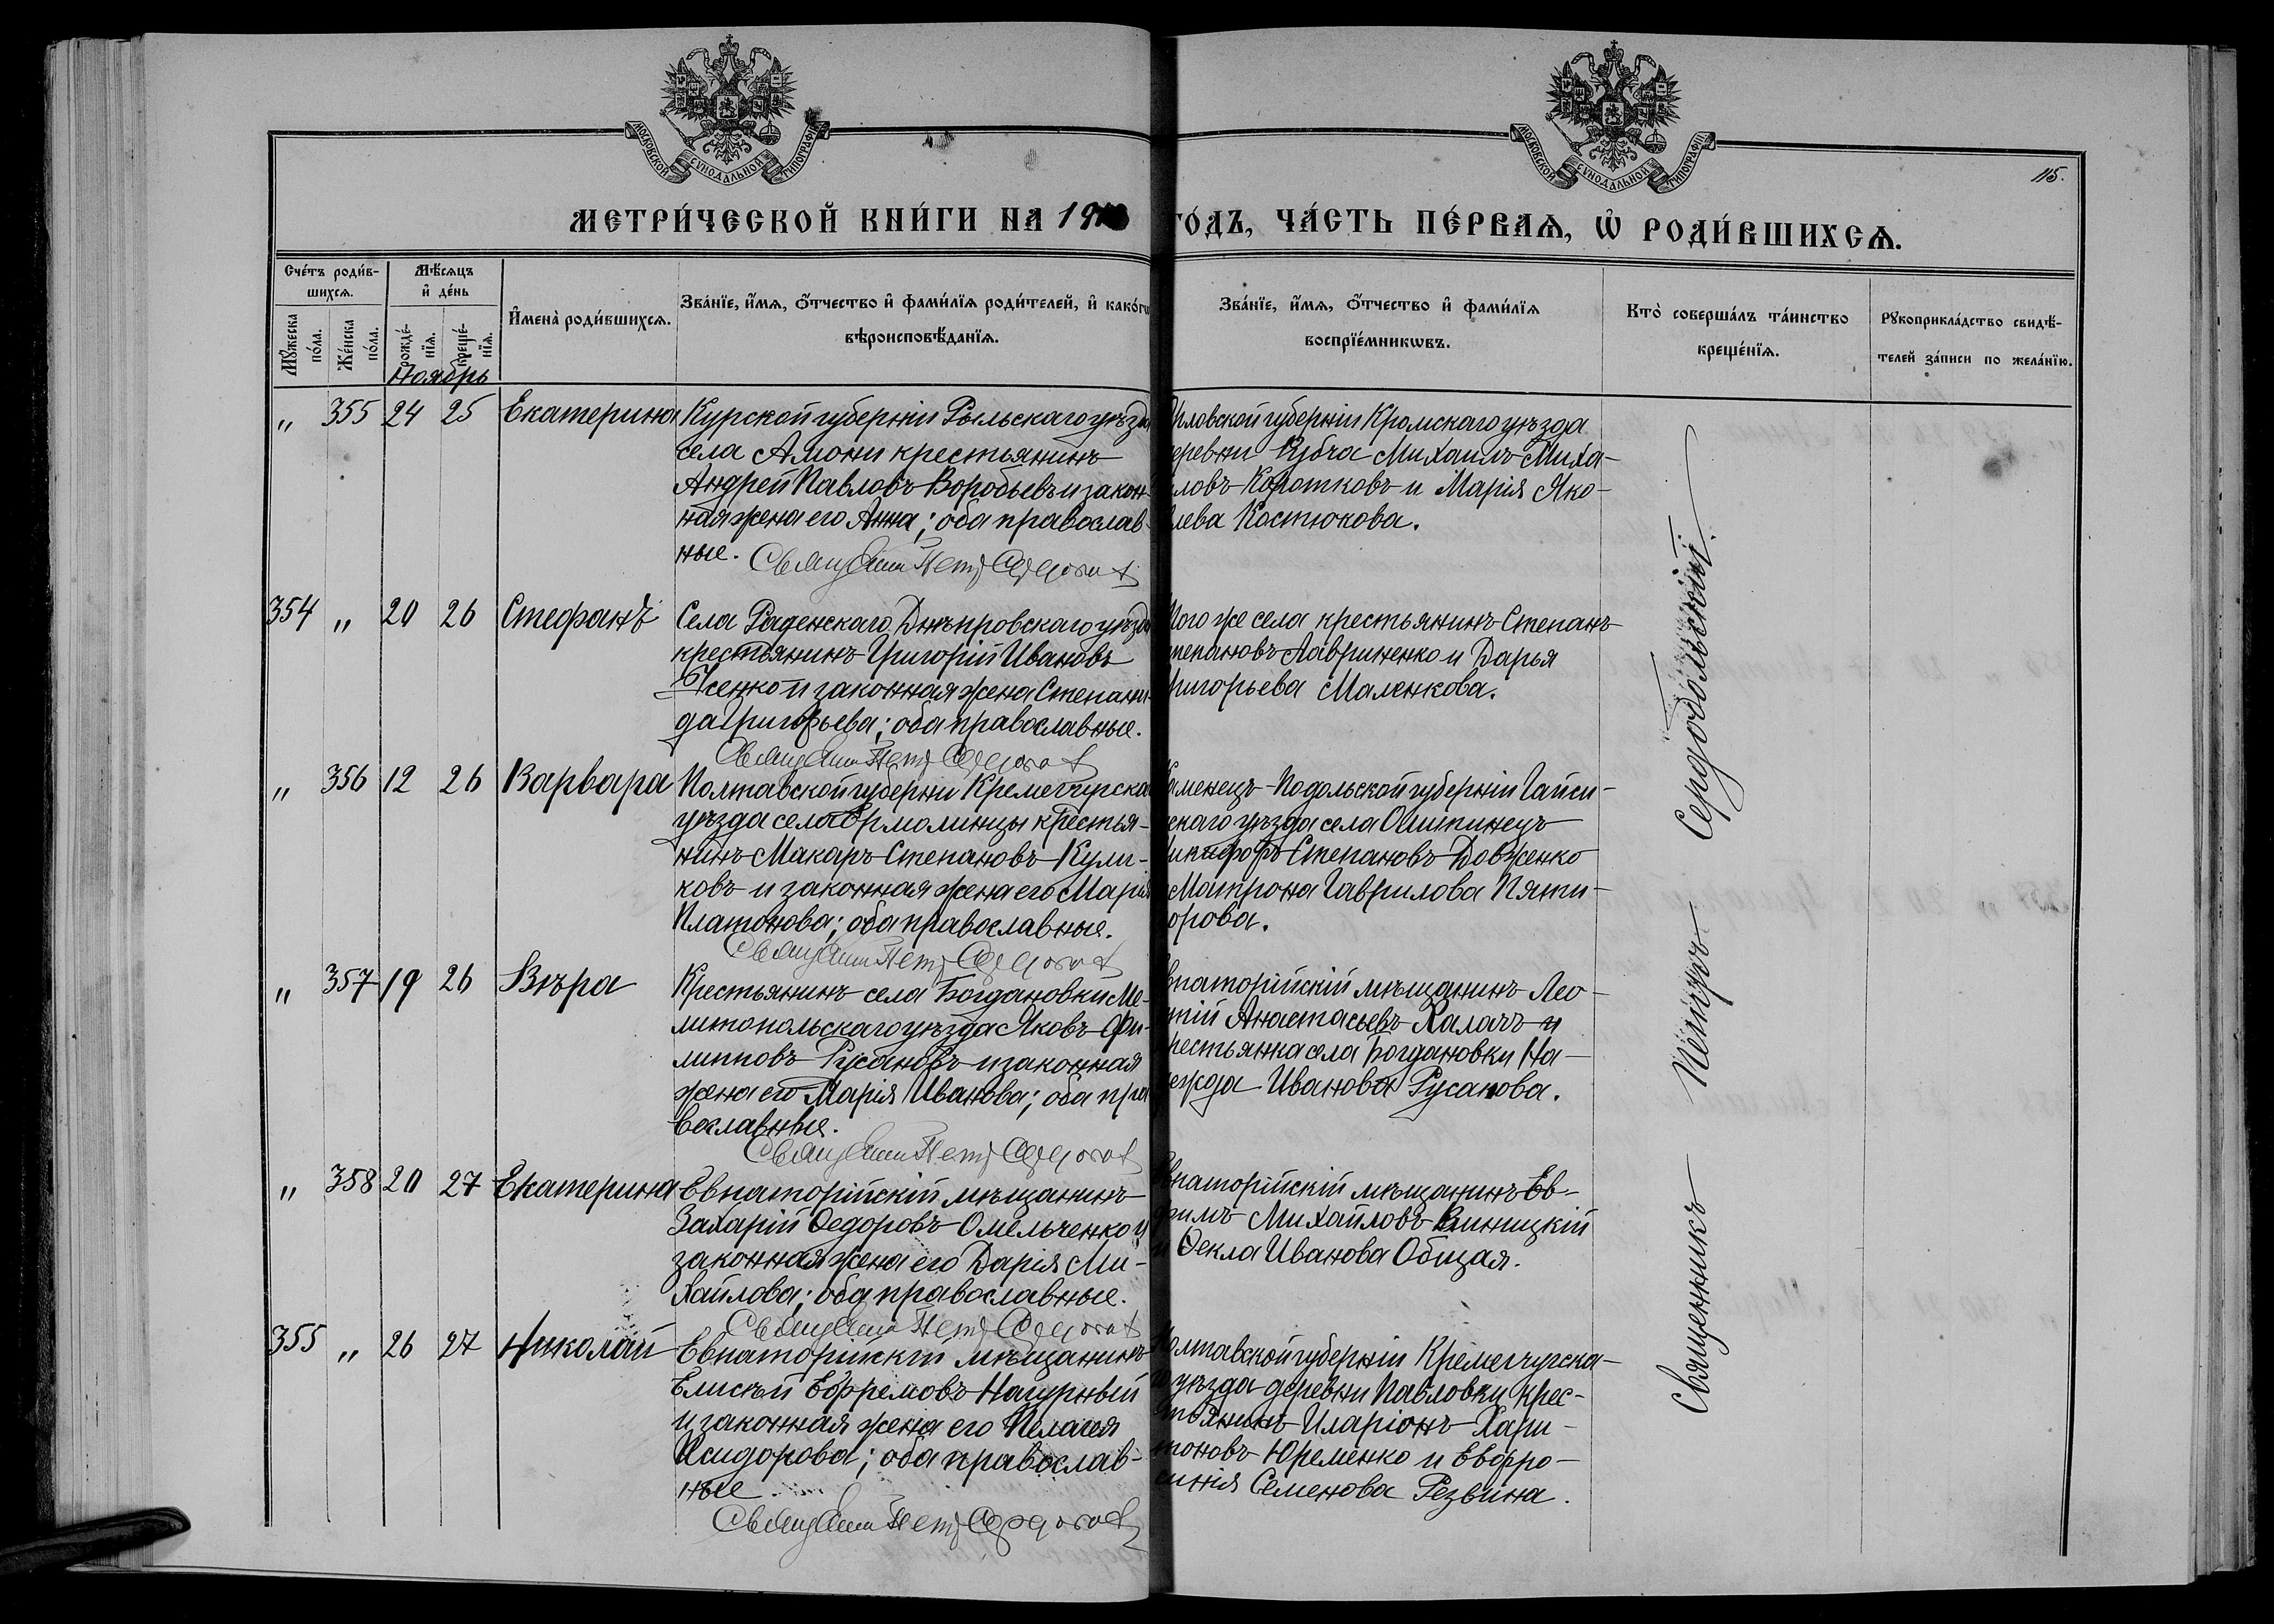 МОСКОВСКОЙ СѴНОДАЛЬНОЙ ТИПОГРАФІИ
МОСКОВСКОЙ СѴНОДАЛЬНОЙ ТИПОГРАФІИ
115.
МЕТРИ́ЧЕСКОЙ КНИ́ГИ НА 19
ГО́ДЪ, ЧА́СТЬ ПЕ́РВАѦ, Ѡ҆ РОДИ́ВШИХСѦ.
Сче́тъ роди́в-
шихсѧ.
Мꙋ́жеска
по́ла.
Же́нска
по́ла.
Мѣ́сѧцъ
и҆ де́нь
рожде́-
нїѧ.
креще́-
нїѧ.
И҆мена̀ роди́вшихсѧ.
Зва́нїе, и҆́мѧ, ѻ҆́тчество и҆ фами́лїѧ роди́телей, и҆ како́гѡ
вѣроисповѣ́данїѧ.
Зва́нїе, и҆́мѧ, ѻ҆́тчество и҆ фами́лїѧ
воспрїе́мникѡвъ.
Кто̀ соверша́лъ та́инство
креще́нїѧ.
Рꙋкоприкла́дство свидѣ́-
телей за́писи по жела́нїю.
Ноябрь
" 355 24 25 Екатерина
Курской губерніи Рыльскаго уѣзда
села Амони крестьянинъ
Андрей Павловъ Воробьевъ и закон-
ная жена его Анна; оба православ-
ные.
Орловской губерніи Кромскаго уѣзда
деревни Михаилъ Миха-
ловъ Коротковъ и Марія Яко-
влева Костюкова.
Священникъ Петръ
354 " 20 26 Стефанъ
Села Раденскаго Днѣпровскаго уѣзда
крестьянинъ Григорій Ивановъ
и законная жена Степани-
да Григорьева; оба православные.
Того же села крестьянинъ Степанъ
Степановъ Лавриненко и Дарья
Григорьева Маленкова.
Священникъ Петръ
" 356 12 26 Варвара
Полтавской губерніи Кременчугска
уѣзда села Ермолинцы крестья-
нинъ Макаръ Степановъ Кули-
ковъ и законная жена его Марія
Платонова; оба православные.
Каменецъ-Подольской губерніи Гайси-
скаго уѣзда села
Никифоръ Степановъ Довженко
Матрона Гаврилова Пяти-
орова.
Священникъ Петръ
" 357 19 26 Вѣра
Крестьянинъ села Богдановки Ме-
литопольскаго уѣзда Яковъ Фи-
липповъ Русановъ и законная
жена его Марія Иванова; оба пра
вославные.
Евпаторійскій мѣщанинъ Лео-
нтій Анастасьевъ Калачъ и
крестьянка села Богдановки На-
дежда Иванова Русанова.
Священникъ Петръ
" 358 20 27 Екатерина
Евпаторійскій мѣщанинъ
Захарій Ѳедоровъ Омельченко и
законная жена его Дарія Ми-
хайлова; оба православные.
Евпаторійскій мѣщанинъ Ев-
фимъ Михайловъ Виницкій
и Ѳекла Иванова Общая.
Священникъ Петръ
355 " 26 27 Николай
Евпаторійскій мѣщанинъ
Елисѣй Ефремовъ Нагурный
и законная жена его Пелагея
Исидорова; оба православ-
ные
Полтавской губерніи Кременчугска-
го уѣзда деревни Павловки крес-
тьянинъ Иларіонъ Хари-
тоновъ Юременко и Евфро-
синія Семенова Резвина.
Священникъ Петръ
Священникъ Петръ Сердобольский.